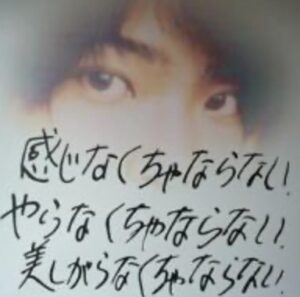 感じなくちゃならない
やらなくちゃならない
美しがらなくちゃならない